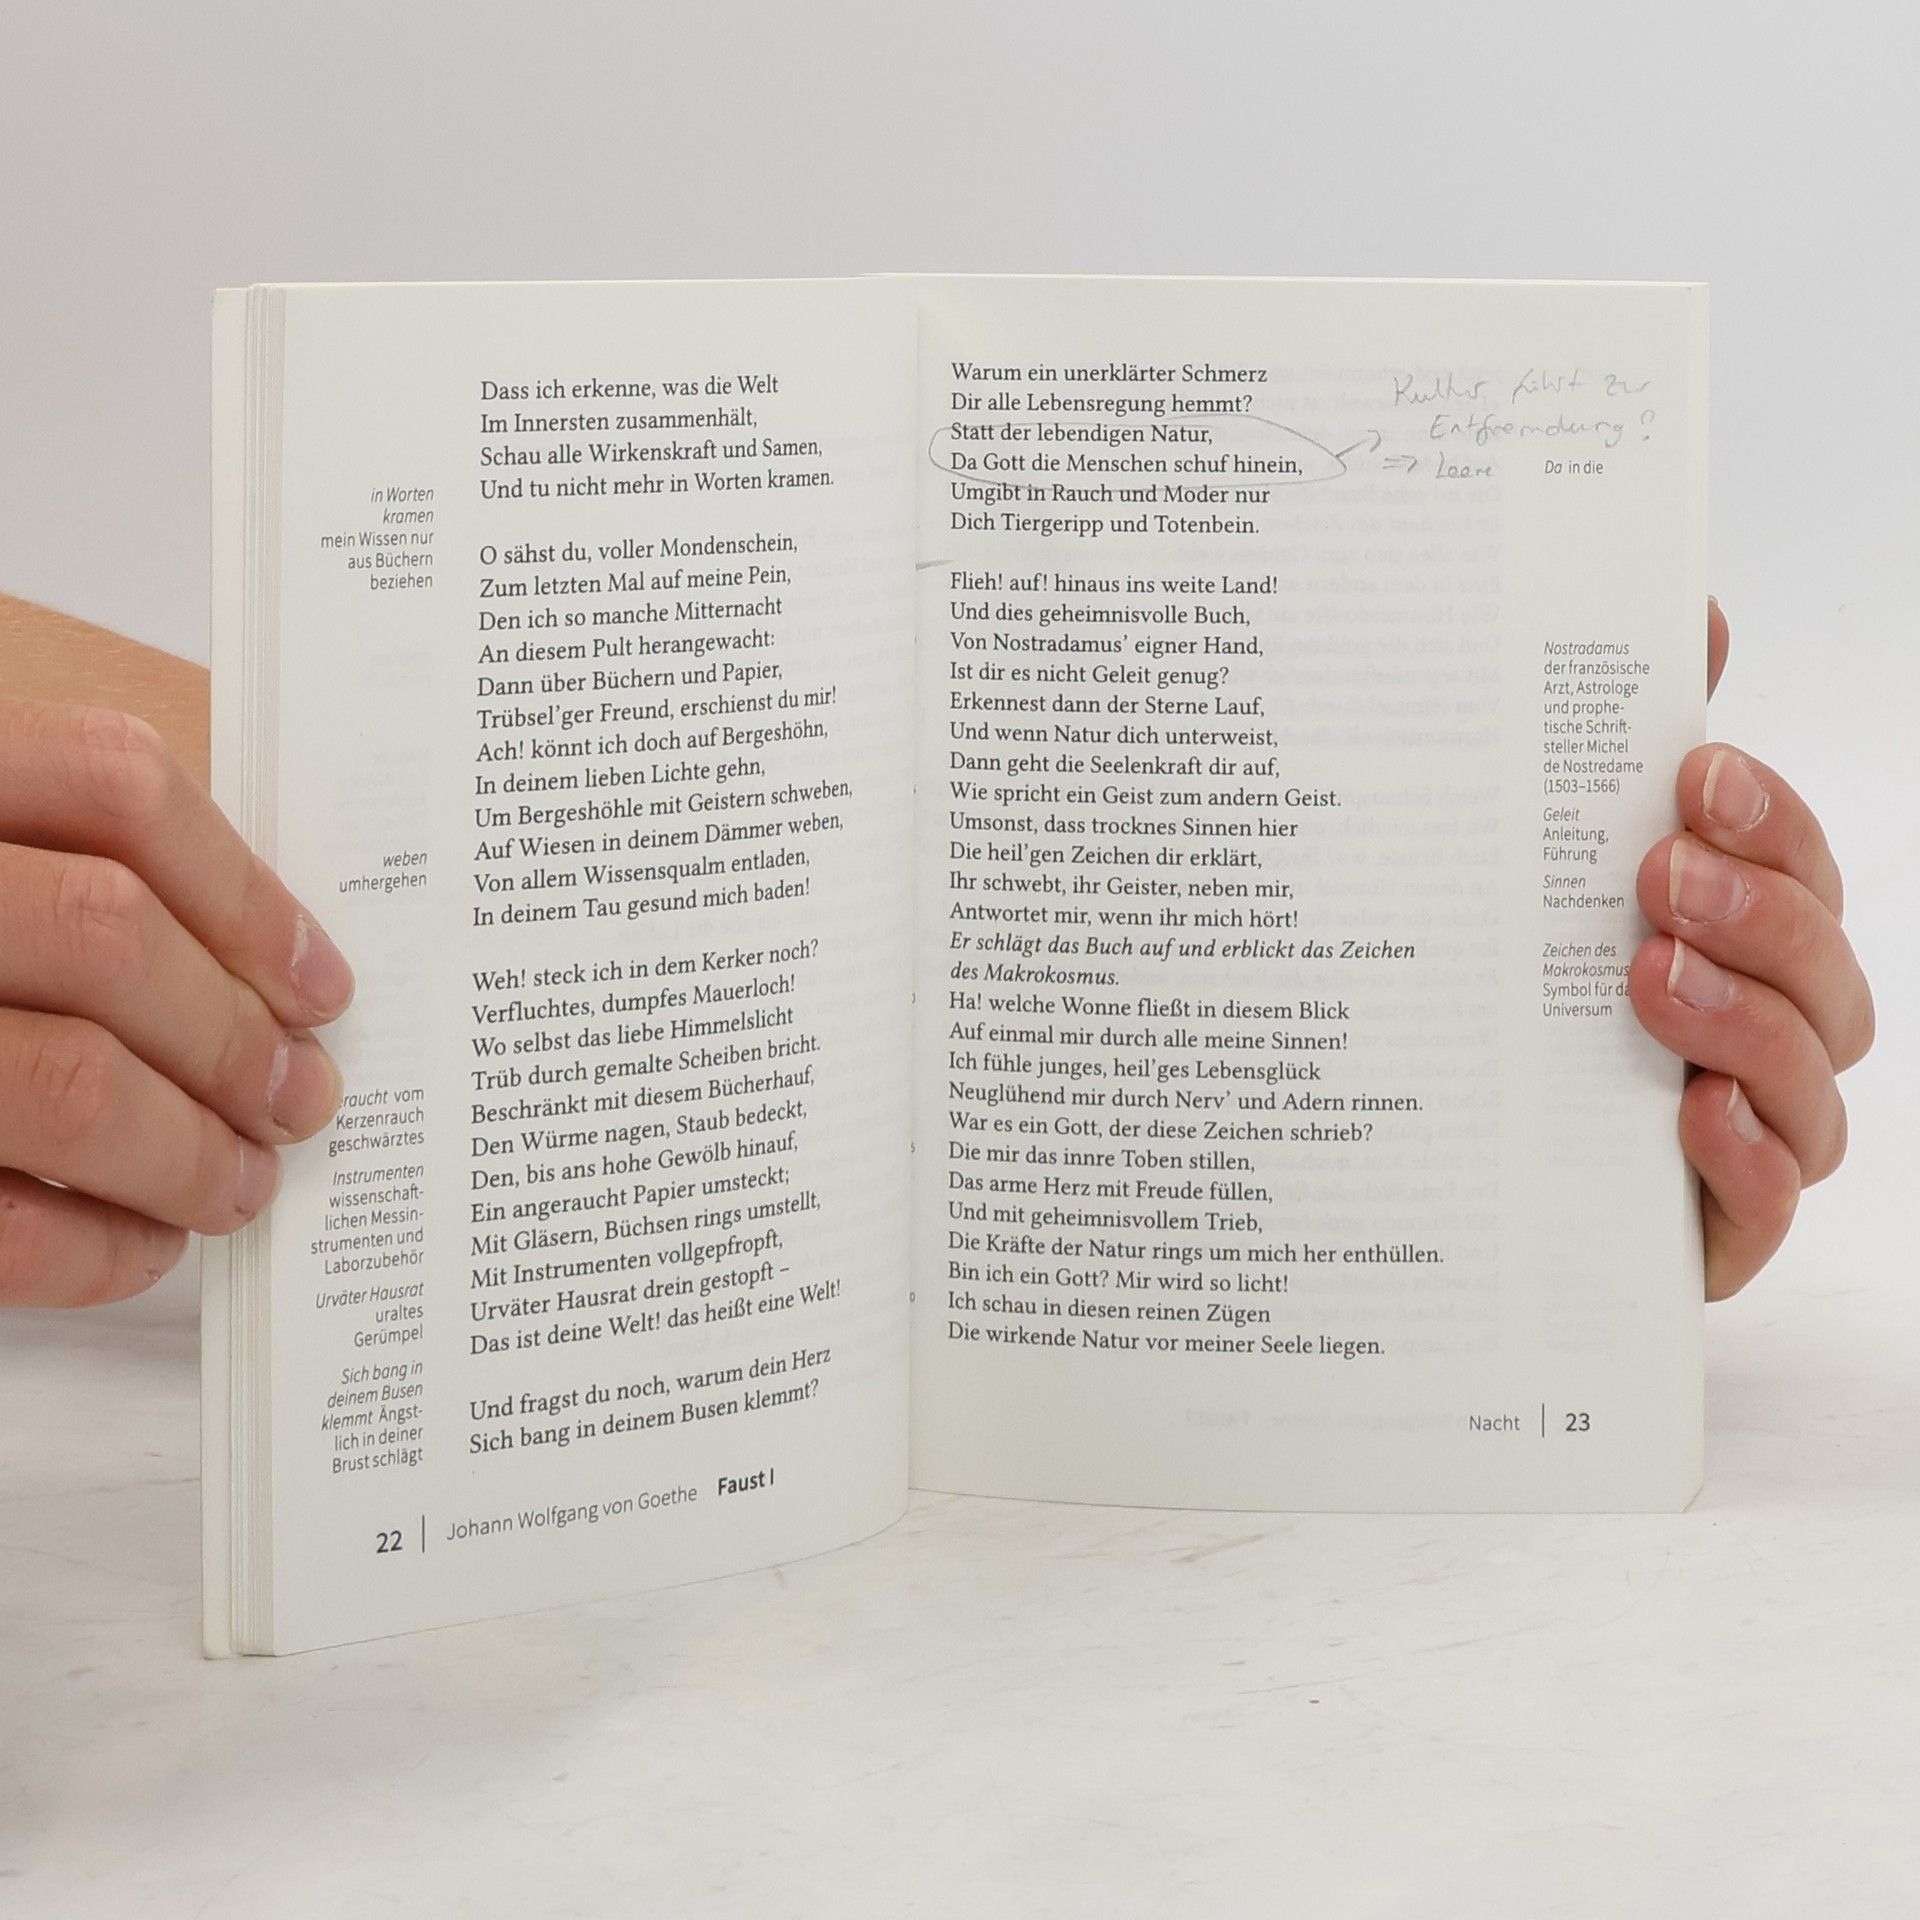 Dass ich erkenne, was die Welt
Im Innersten zusammenhält,
Schau alle Wirkenskraft und Samen,
Und tu nicht mehr in Worten kramen.
in Worten
kramen
mein Wissen nur
aus Büchern
beziehen
O sähst du, voller Mondenschein,
Zum letzten Mal auf meine Pein,
Den ich so manche Mitternacht
An diesem Pult herangewacht:
Dann über Büchern und Papier,
Trübsel’ger Freund, erschienst du mir!
Ach! könnt ich doch auf Bergeshöhn,
In deinem lieben Lichte gehn,
Um Bergeshöhle mit Geistern schweben,
Auf Wiesen in deinem Dämmer weben,
Von allem Wissensqualm entladen,
In deinem Tau gesund mich baden!
weben
umhergehen
Weh! steck ich in dem Kerker noch?
Verfluchtes, dumpfes Mauerloch!
Wo selbst das liebe Himmelslicht
Trüb durch gemalte Scheiben bricht.
Beschränkt mit diesem Bücherhauf,
Den Würme nagen, Staub bedeckt,
Den, bis ans hohe Gewölb hinauf,
Ein angeraucht Papier umsteckt;
Mit Gläsern, Büchsen rings umstellt,
Mit Instrumenten vollgepfropft,
Urväter Hausrat drein gestopft –
Das ist deine Welt! das heißt eine Welt!
raucht vom
Kerzenrauch
geschwärztes
Instrumenten
wissenschaft-
lichen Messin-
strumenten und
Laborzubehör
Urväter Hausrat
uraltes
Gerümpel
Und fragst du noch, warum dein Herz
Sich bang in deinem Busen klemmt?
Sich bang in
deinem Busen
klemmt Ängst-
lich in deiner
Brust schlägt
22 | Johann Wolfgang von Goethe Faust I
Warum ein unerklärter Schmerz
Dir alle Lebensregung hemmt?
Statt der lebendigen Natur,
Da Gott die Menschen schuf hinein,
Umgibt in Rauch und Moder nur
Dich Tiergeripp und Totenbein.
Kultur führt zur
Entfremdung?
=> Leere
Da in die
Flieh! auf! hinaus ins weite Land!
Und dies geheimnisvolle Buch,
Von Nostradamus’ eigner Hand,
Ist dir es nicht Geleit genug?
Erkennest dann der Sterne Lauf,
Und wenn Natur dich unterweist,
Dann geht die Seelenkraft dir auf,
Wie spricht ein Geist zum andern Geist.
Umsonst, dass trocknes Sinnen hier
Die heil’gen Zeichen dir erklärt,
Ihr schwebt, ihr Geister, neben mir,
Antwortet mir, wenn ihr mich hört!
Er schlägt das Buch auf und erblickt das Zeichen
des Makrokosmus.
Ha! welche Wonne fließt in diesem Blick
Auf einmal mir durch alle meine Sinnen!
Ich fühle junges, heil’ges Lebensglück
Neuglühend mir durch Nerv’ und Adern rinnen.
War es ein Gott, der diese Zeichen schrieb?
Die mir das innre Toben stillen,
Das arme Herz mit Freude füllen,
Und mit geheimnisvollem Trieb,
Die Kräfte der Natur rings um mich her enthüllen.
Bin ich ein Gott? Mir wird so licht!
Ich schau in diesen reinen Zügen
Die wirkende Natur vor meiner Seele liegen.
Nostradamus
der französische
Arzt, Astrologe
und prophe-
tische Schrift-
steller Michel
de Nostredame
(1503–1566)
Geleit
Anleitung,
Führung
Sinnen
Nachdenken
Zeichen des
Makrokosmus
Symbol für
Universum
Nacht | 23